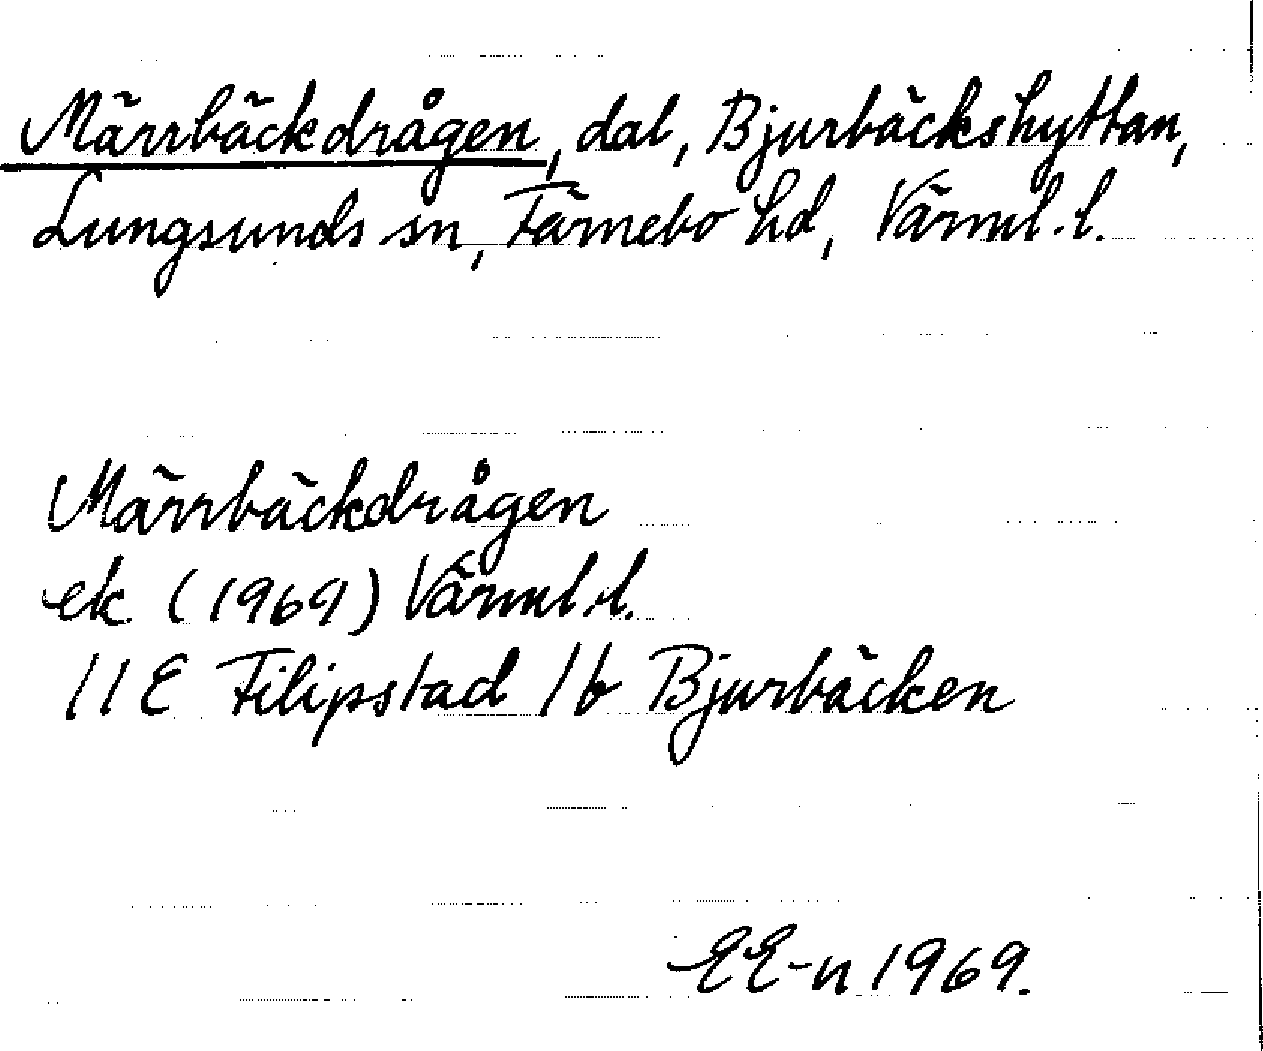 Märrbäckdrågen, dal, Bjurbäckshyttan,
Lungsunds sn, Färnebo hd, Värml. l.
Märrbäckdrågen
ek (1969) Värml. l.
11E Filipstad 1b Bjurbäcken
EE-n 1969.